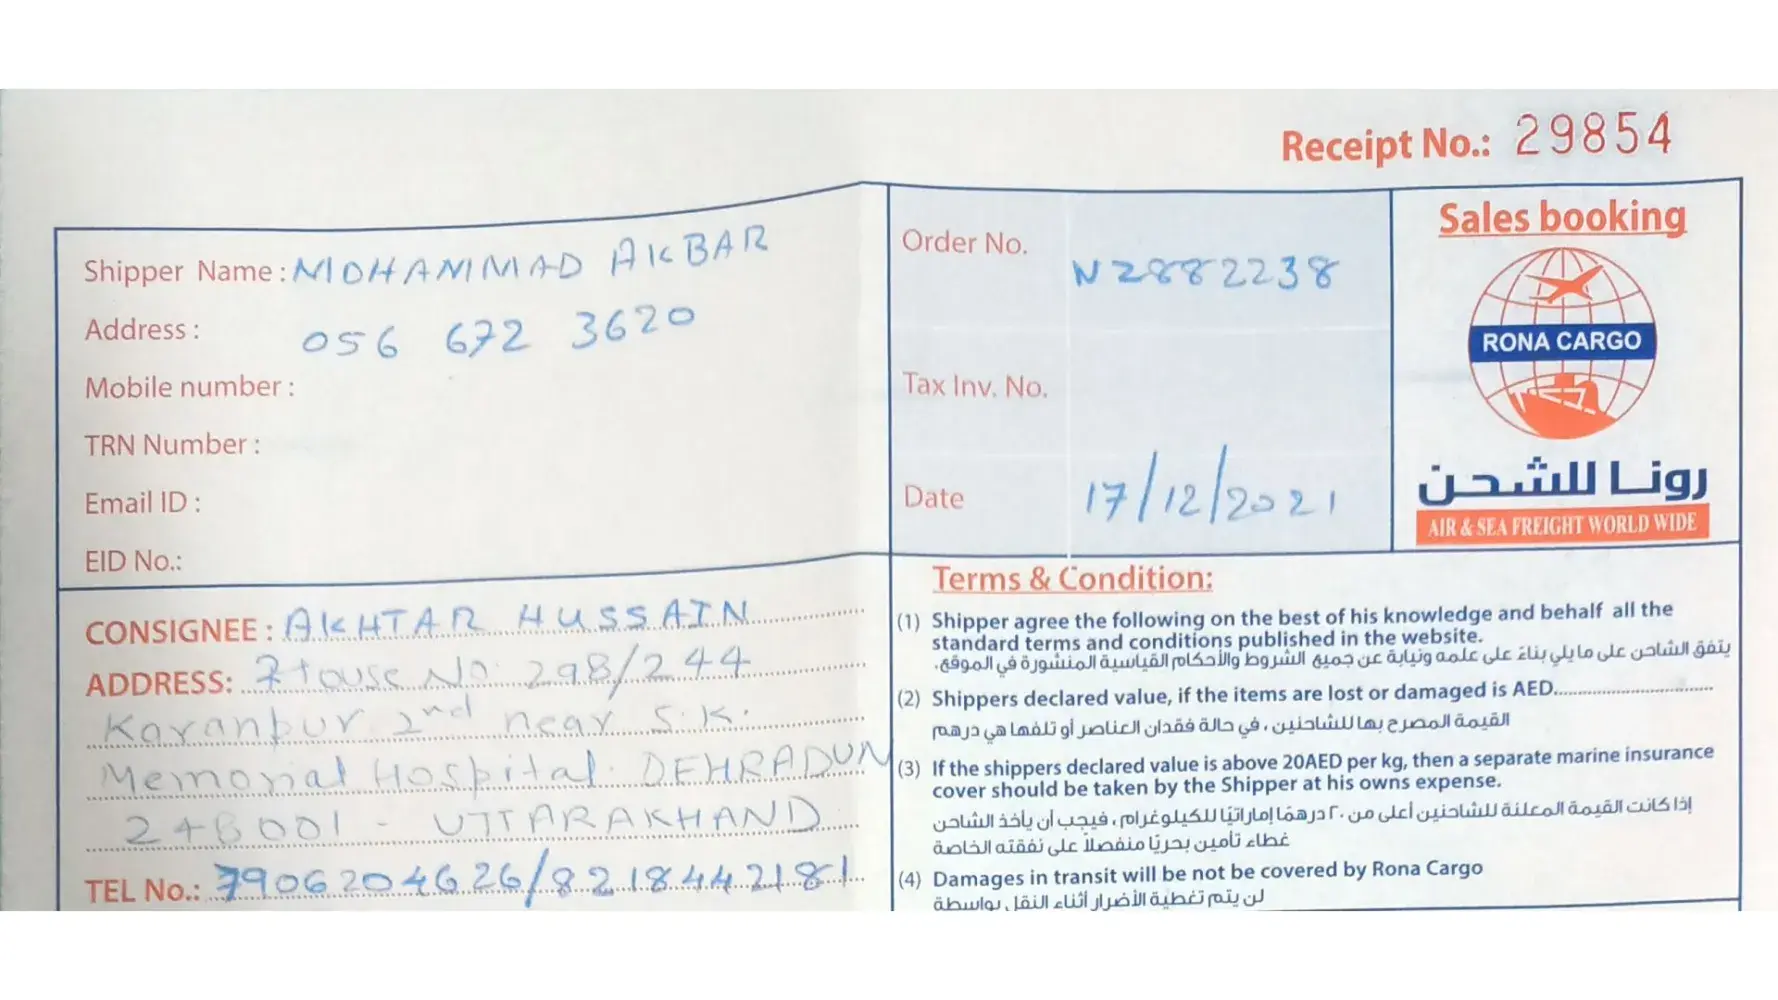 Receipt No.: 29854
Shipper Name : MOHAMMAD AKBAR
Address : 056 672 3620
Mobile number :
TRN Number :
Email ID :
EID No.:
Order No. N2882238
Tax Inv. No.
Date 17/12/2021
Sales booking
RONA CARGO
رونا للشحن
AIR & SEA FREIGHT WORLD WIDE
CONSIGNEE : AKHTAR HUSSAIN
ADDRESS: House No. 298/244
Karanpur 2nd near S.K.
Memorial Hospital. DEHRADUN
248001 - UTTARAKHAND
TEL No.: 7906204626/8218442181
Terms & Condition:
(1) Shipper agree the following on the best of his knowledge and behalf all the
standard terms and conditions published in the website.
يتفق الشاحن على ما يلي بناءً على علمه ونيابة عن جميع الشروط والأحكام القياسية المنشورة في الموقع.
(2) Shippers declared value, if the items are lost or damaged is AED................................
القيمة المصرح بها للشاحنين ، في حالة فقدان العناصر أو تلفها هي درهم
(3) If the shippers declared value is above 20AED per kg, then a separate marine insurance
cover should be taken by the Shipper at his owns expense.
إذا كانت القيمة المعلنة للشاحنين أعلى من ٢٠ درهمًا إماراتيًا للكيلوغرام ، فيجب أن يأخذ الشاحن
غطاء تأمين بحريًا منفصلاً على نفقته الخاصة
(4) Damages in transit will be not be covered by Rona Cargo
لن يتم تغطية الأضرار أثناء النقل بواسطة